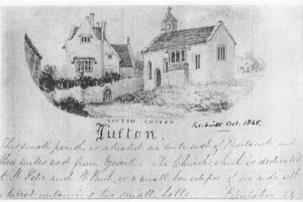 LUFTON CHURCH
Lufton.
Rebuilt Oct. 1865.
This small parish is situated a mile west of Preston and
three miles west from Yeovil. The Church, which is dedicated
to St Peter and St Paul, is a small of one aisle with
a turret containing two small bells. Population 24